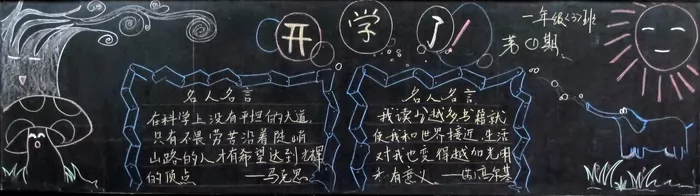 开学了!
一年级<3>班
第①期
名人名言
在科学上没有平坦的大道,
只有不畏劳苦沿着陡峭
山路的人才有希望达到光辉
的顶点 ——马克思
名人名言
我读书越多书籍就
使我和世界接近,生活
对我也变得越加光明
和有意义 ——高尔基